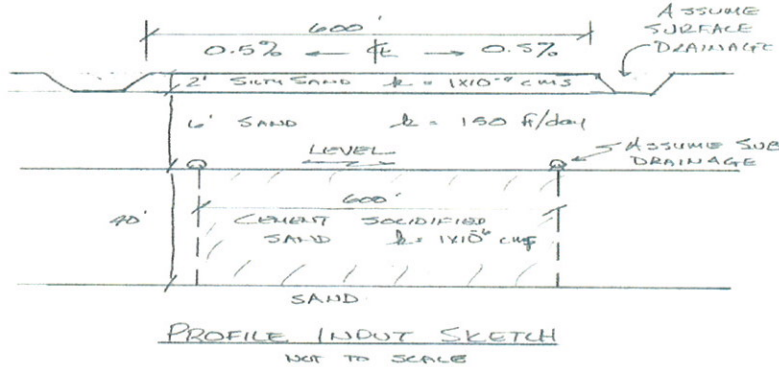 ASSUME
SURFACE
DRAINAGE
600'
0.5% ← ℄ → 0.5%
2' SILTY SAND k = 1X10⁻⁴ cms
6' SAND k = 150 ft/day
LEVEL
ASSUME SUB
DRAINAGE
600'
40'
CEMENT SOLIDIFIED
SAND k = 1X10⁻⁶ cms
SAND
PROFILE INPUT SKETCH
NOT TO SCALE